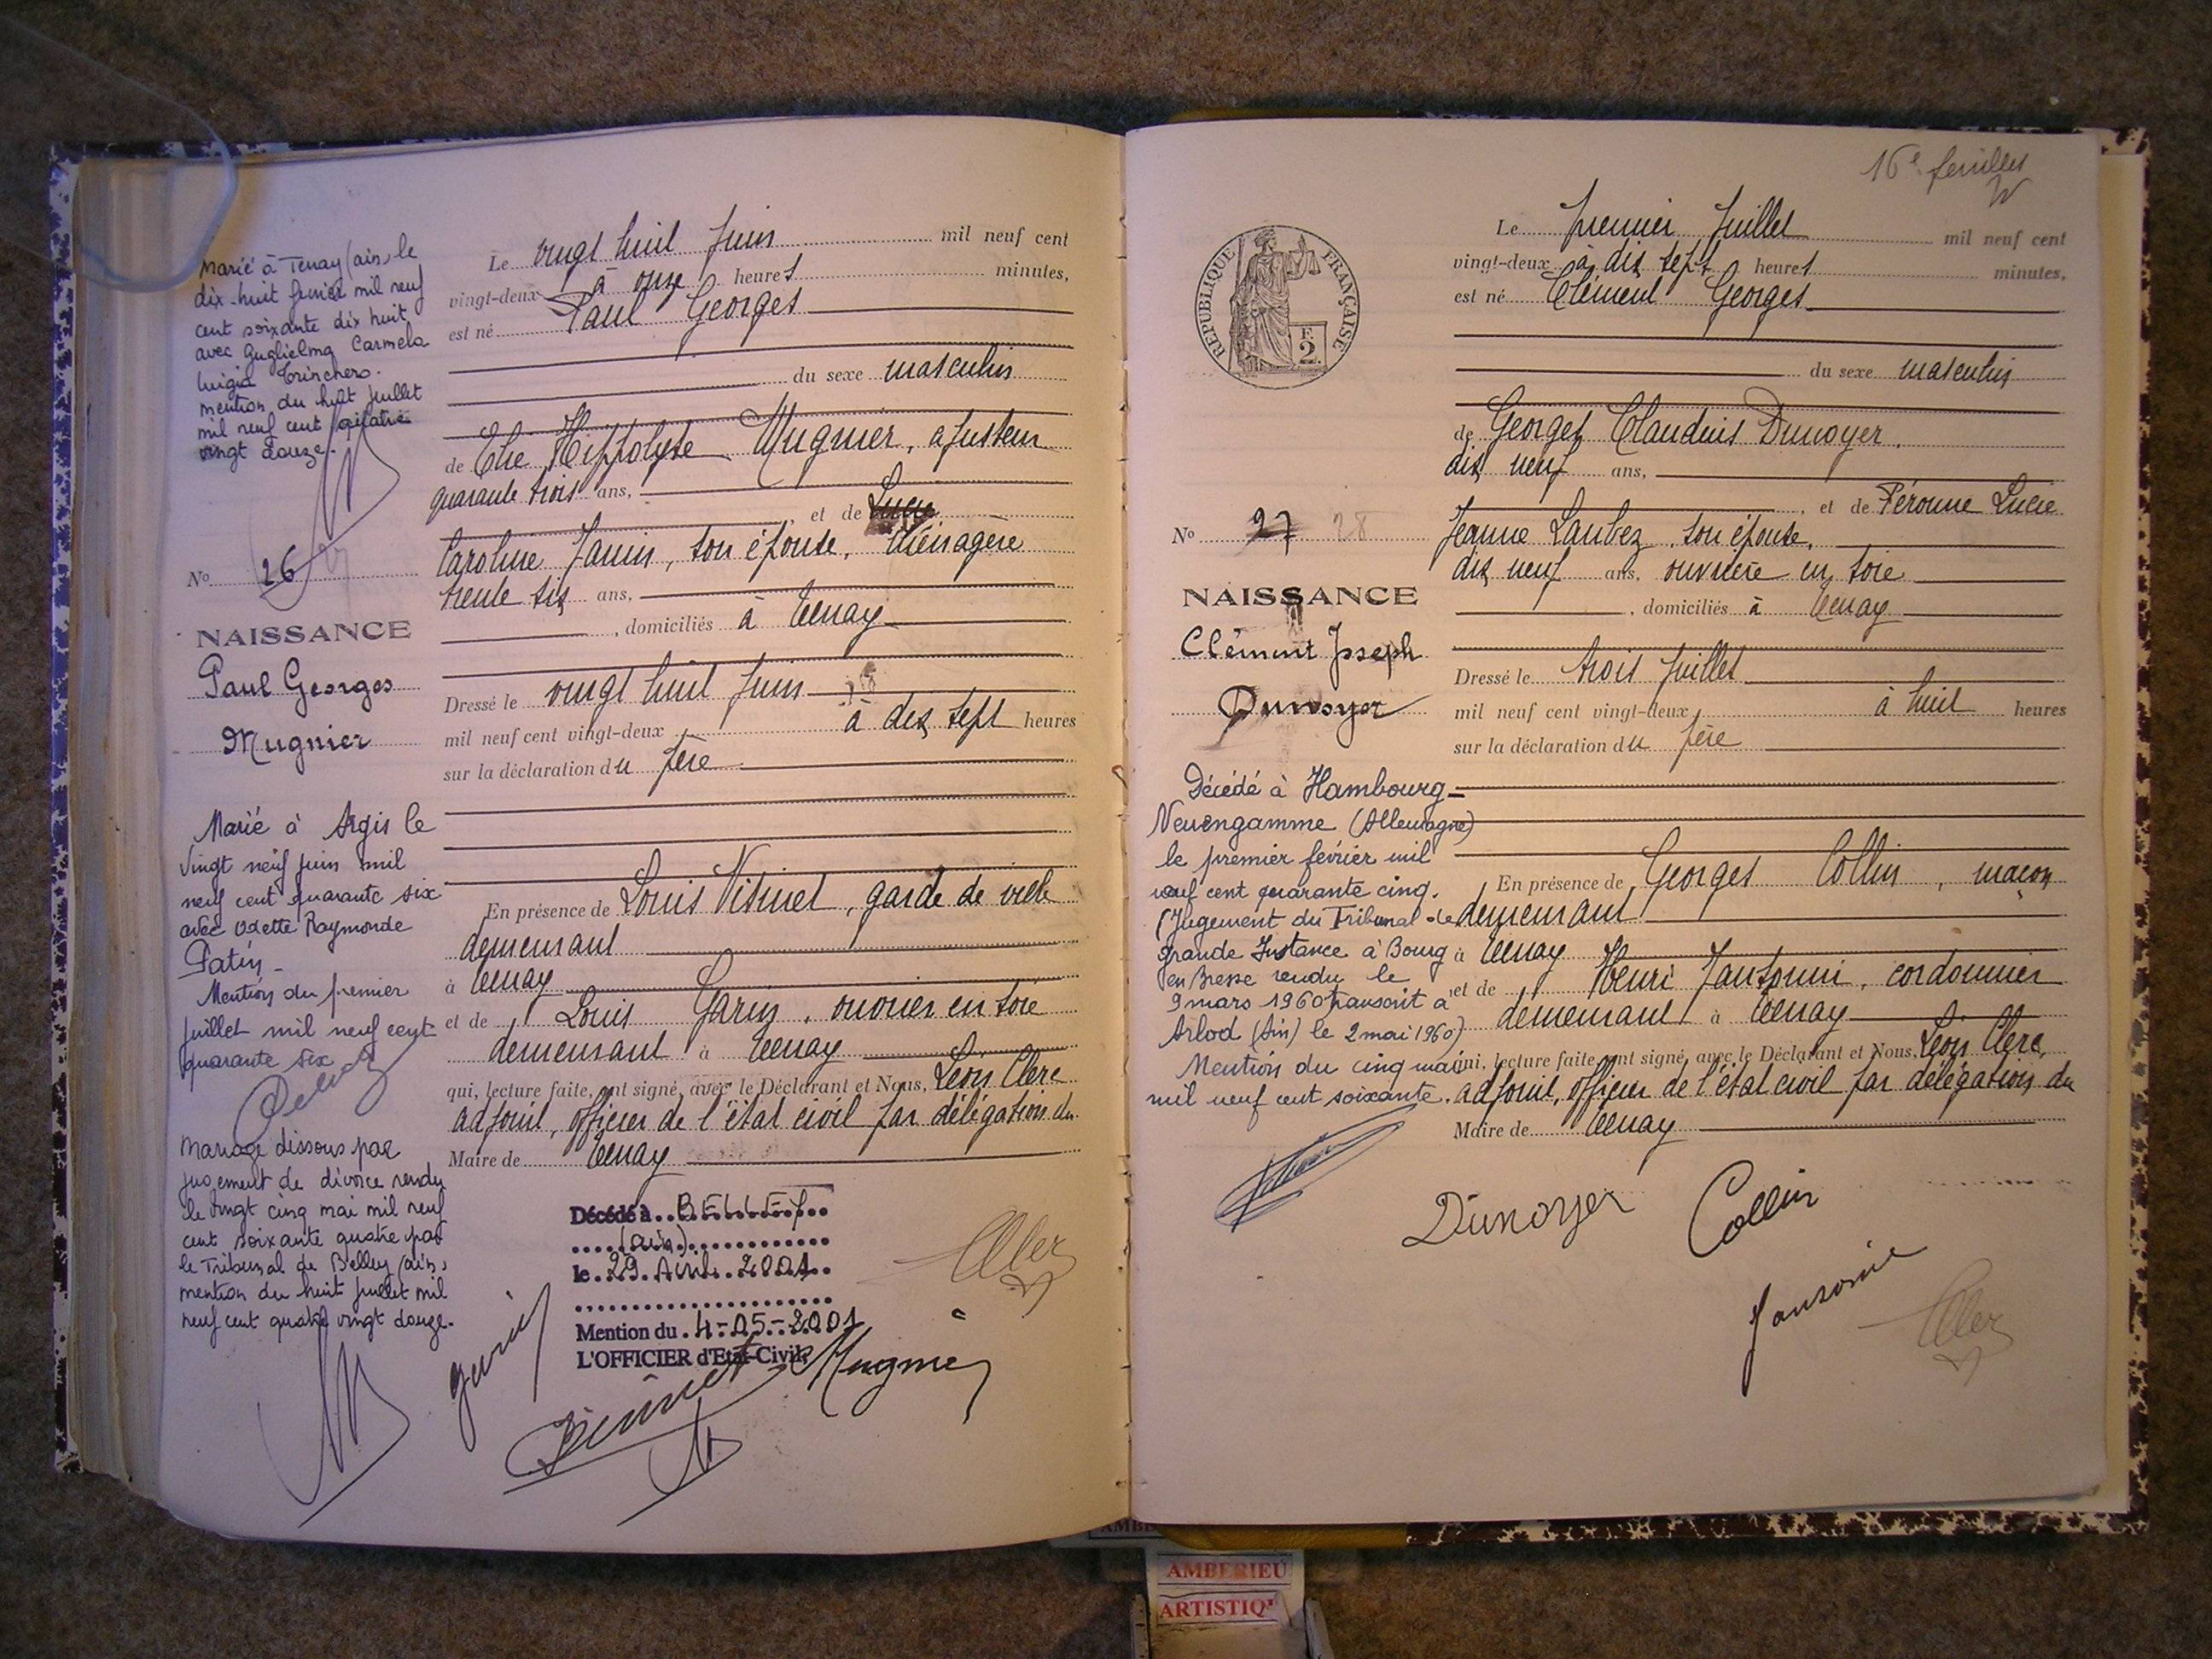 Marié à Tenay (ain) le
dix-huit fevrier mil neuf
cent soixante dix huit
avec Guglielma Carmela
luigia Trinchero.
mention du huit juillet
mil neuf cent quatre
vingt douze.
No 26
NAISSANCE
Paul Georges
Mugnier
Marié à Argis le
vingt neuf juin mil
neuf cent quarante six
avec Odette Raymonde
Patin
Mention du premier
juillet mil neuf cent
quarante six
Mariage dissous par
jugement de divorce rendu
le vingt cinq mai mil neuf
cent soixante quatre par
le Tribunal de Belley (ain)
mention du huit juillet mil
neuf cent quatre vingt douze.
Le vingt huit Juin mil neuf cent
vingt-deux à onze heures minutes,
est né Paul Georges
du sexe masculin
de Elie Hippolyte Mugnier, ajusteur
quarante trois ans,
et de Lucie
Caroline Janin, son épouse, ménagère
trente six ans,
, domiciliés à Tenay
Dressé le vingt huit Juin
mil neuf cent vingt-deux à dix sept heures
sur la déclaration du père
En présence de Louis Visinet, garde de ville
demeurant
à Tenay
et de Louis Garin, ouvrier en soie
demeurant à Tenay
qui, lecture faite, ont signé, avec le Déclarant et Nous, Léon Clerc
adjoint, officier de l'état civil par délégation du
Maire de Tenay
Décédé à BELLEY
(ain)
le 29 Avril 2001
Mention du 4-05-2001
L'OFFICIER d'Etat-Civil,
Garin
Mugnier
16e feuilles
RÉPUBLIQUE FRANÇAISE
F.
2.
No 27 28
NAISSANCE
Clément Joseph
Dunoyer
Décédé à Hambourg-
Neuengamme (Allemagne)
le premier février mil
neuf cent quarante cinq.
(Jugement du Tribunal de
grande Instance à Bourg
en Bresse rendu le
9 mars 1960 transcrit à
Arlod (Ain) le 2 mai 1960)
Mention du cinq mai
mil neuf cent soixante.
Le premier Juillet mil neuf cent
vingt-deux à dix sept heures minutes,
est né Clément Georges
du sexe masculin
de Georges Claudius Dunoyer,
dix neuf ans,
, et de Péronne Lucie
Jeanne Laubez, son épouse,
dix neuf ans, ouvrière en soie
, domiciliés à Tenay
Dressé le trois Juillet
mil neuf cent vingt-deux à huit heures
sur la déclaration du père
En présence de Georges Collin, maçon
demeurant
à Tenay
et de Henri Jansonni, cordonnier
demeurant à Tenay
qui, lecture faite, ont signé, avec le Déclarant et Nous, Léon Clerc,
adjoint, officier de l'état civil par délégation du
Maire de Tenay
Dunoyer
Collin
AMBERIEU
ARTISTIQ